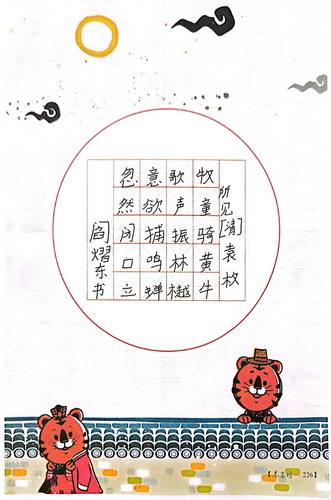 所见[清]袁枚
牧童骑黄牛
歌声振林樾
意欲捕鸣蝉
忽然闭口立
阎熠东书
226